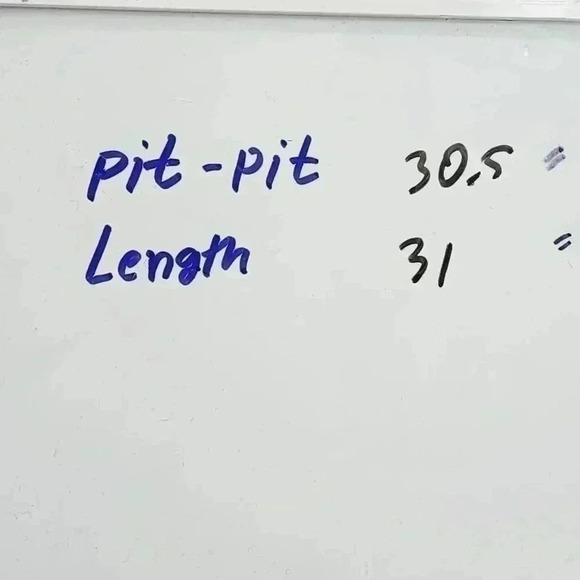 pit-pit 30.5 "
Length 31 "